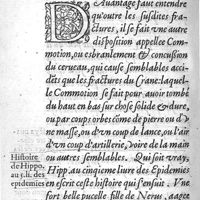 DAvantage faut entendre
qu'outre les susdites fra-
ctures, il se fait vne autre
disposition appellee Com-
motion, ou esbranlement & concussion
du cerueau, qui cause semblables acci-
dẽts que les fractures du Crane: laquel-
le Commotion se fait pour auoir tombé
du haut en bas sur chose solide & dure,
ou par coup: orbes cõme de pierre ou d'v
ne masse, ou d'vn coup de lance, ou l'air
d'vn coup d'artillerie, voire de la main
ou autres semblables. Qui soit vray,
Hipp. au cinquieme liure des Epidemies
en escrit ceste histoire qui s'ensuit. Vne
fort belle pucelle fille de Nerius, aagee
Histoire
de Hippo.
au 5. li. des
epidemies